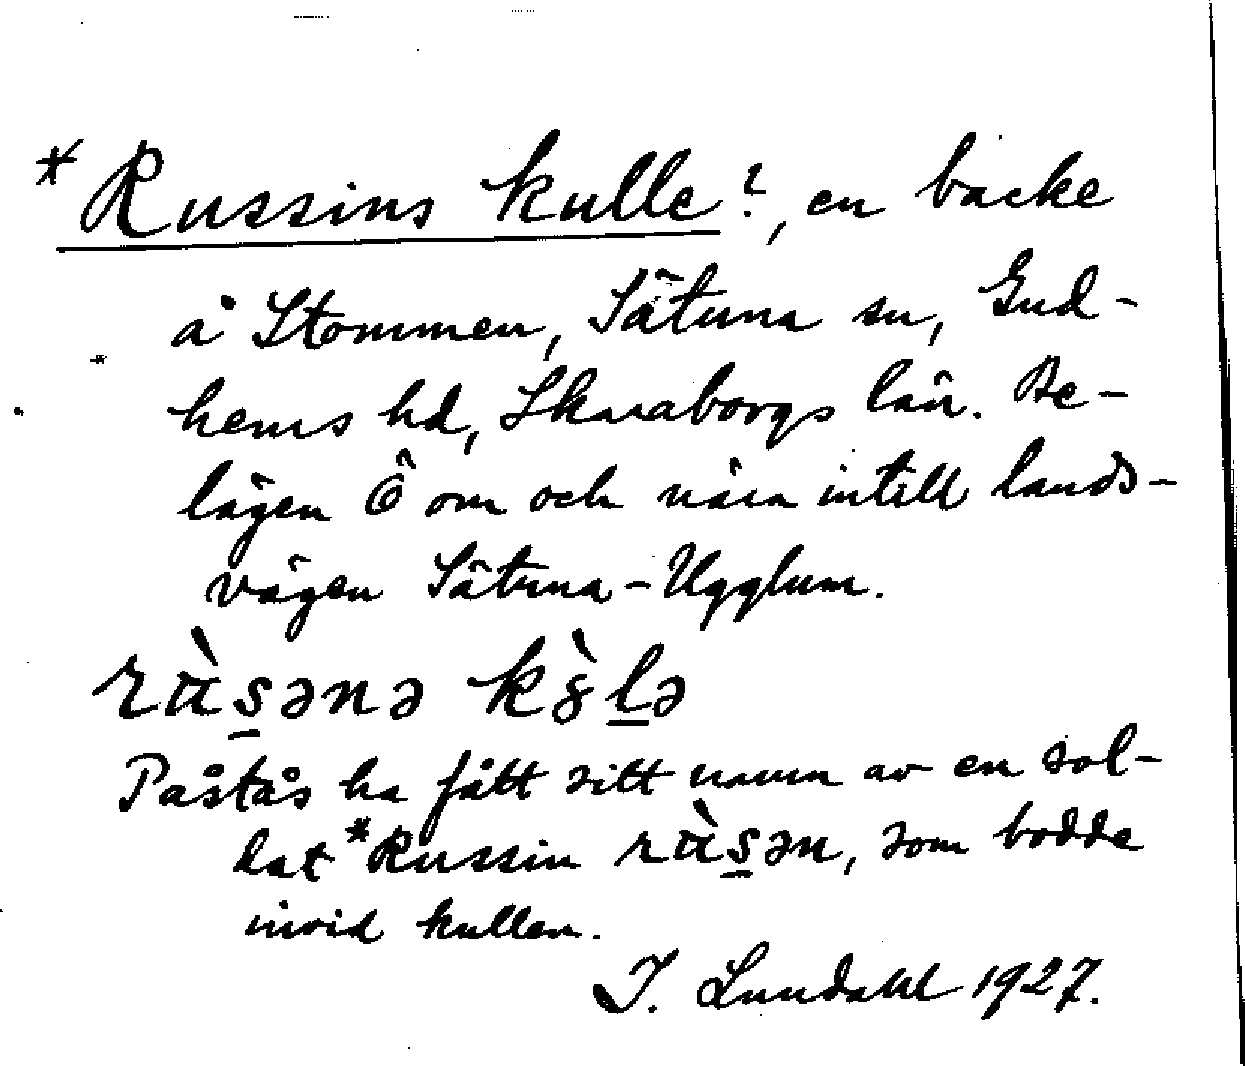 *Russins kulle?, en backe
å Stommen, Sätuna sn, Gud-
hems hd, Skaraborgs län. Be-
lägen Ö om och nära intill lands-
vägen Sätuna-Ugglum.
rɑ̀s̱ənə kɞ̀ḻə
Påstås ha fått sitt namn av en sol-
dat *Russin rɑ̀s̱ən, som bodde
invid kullen.
I. Lundahl 1927.